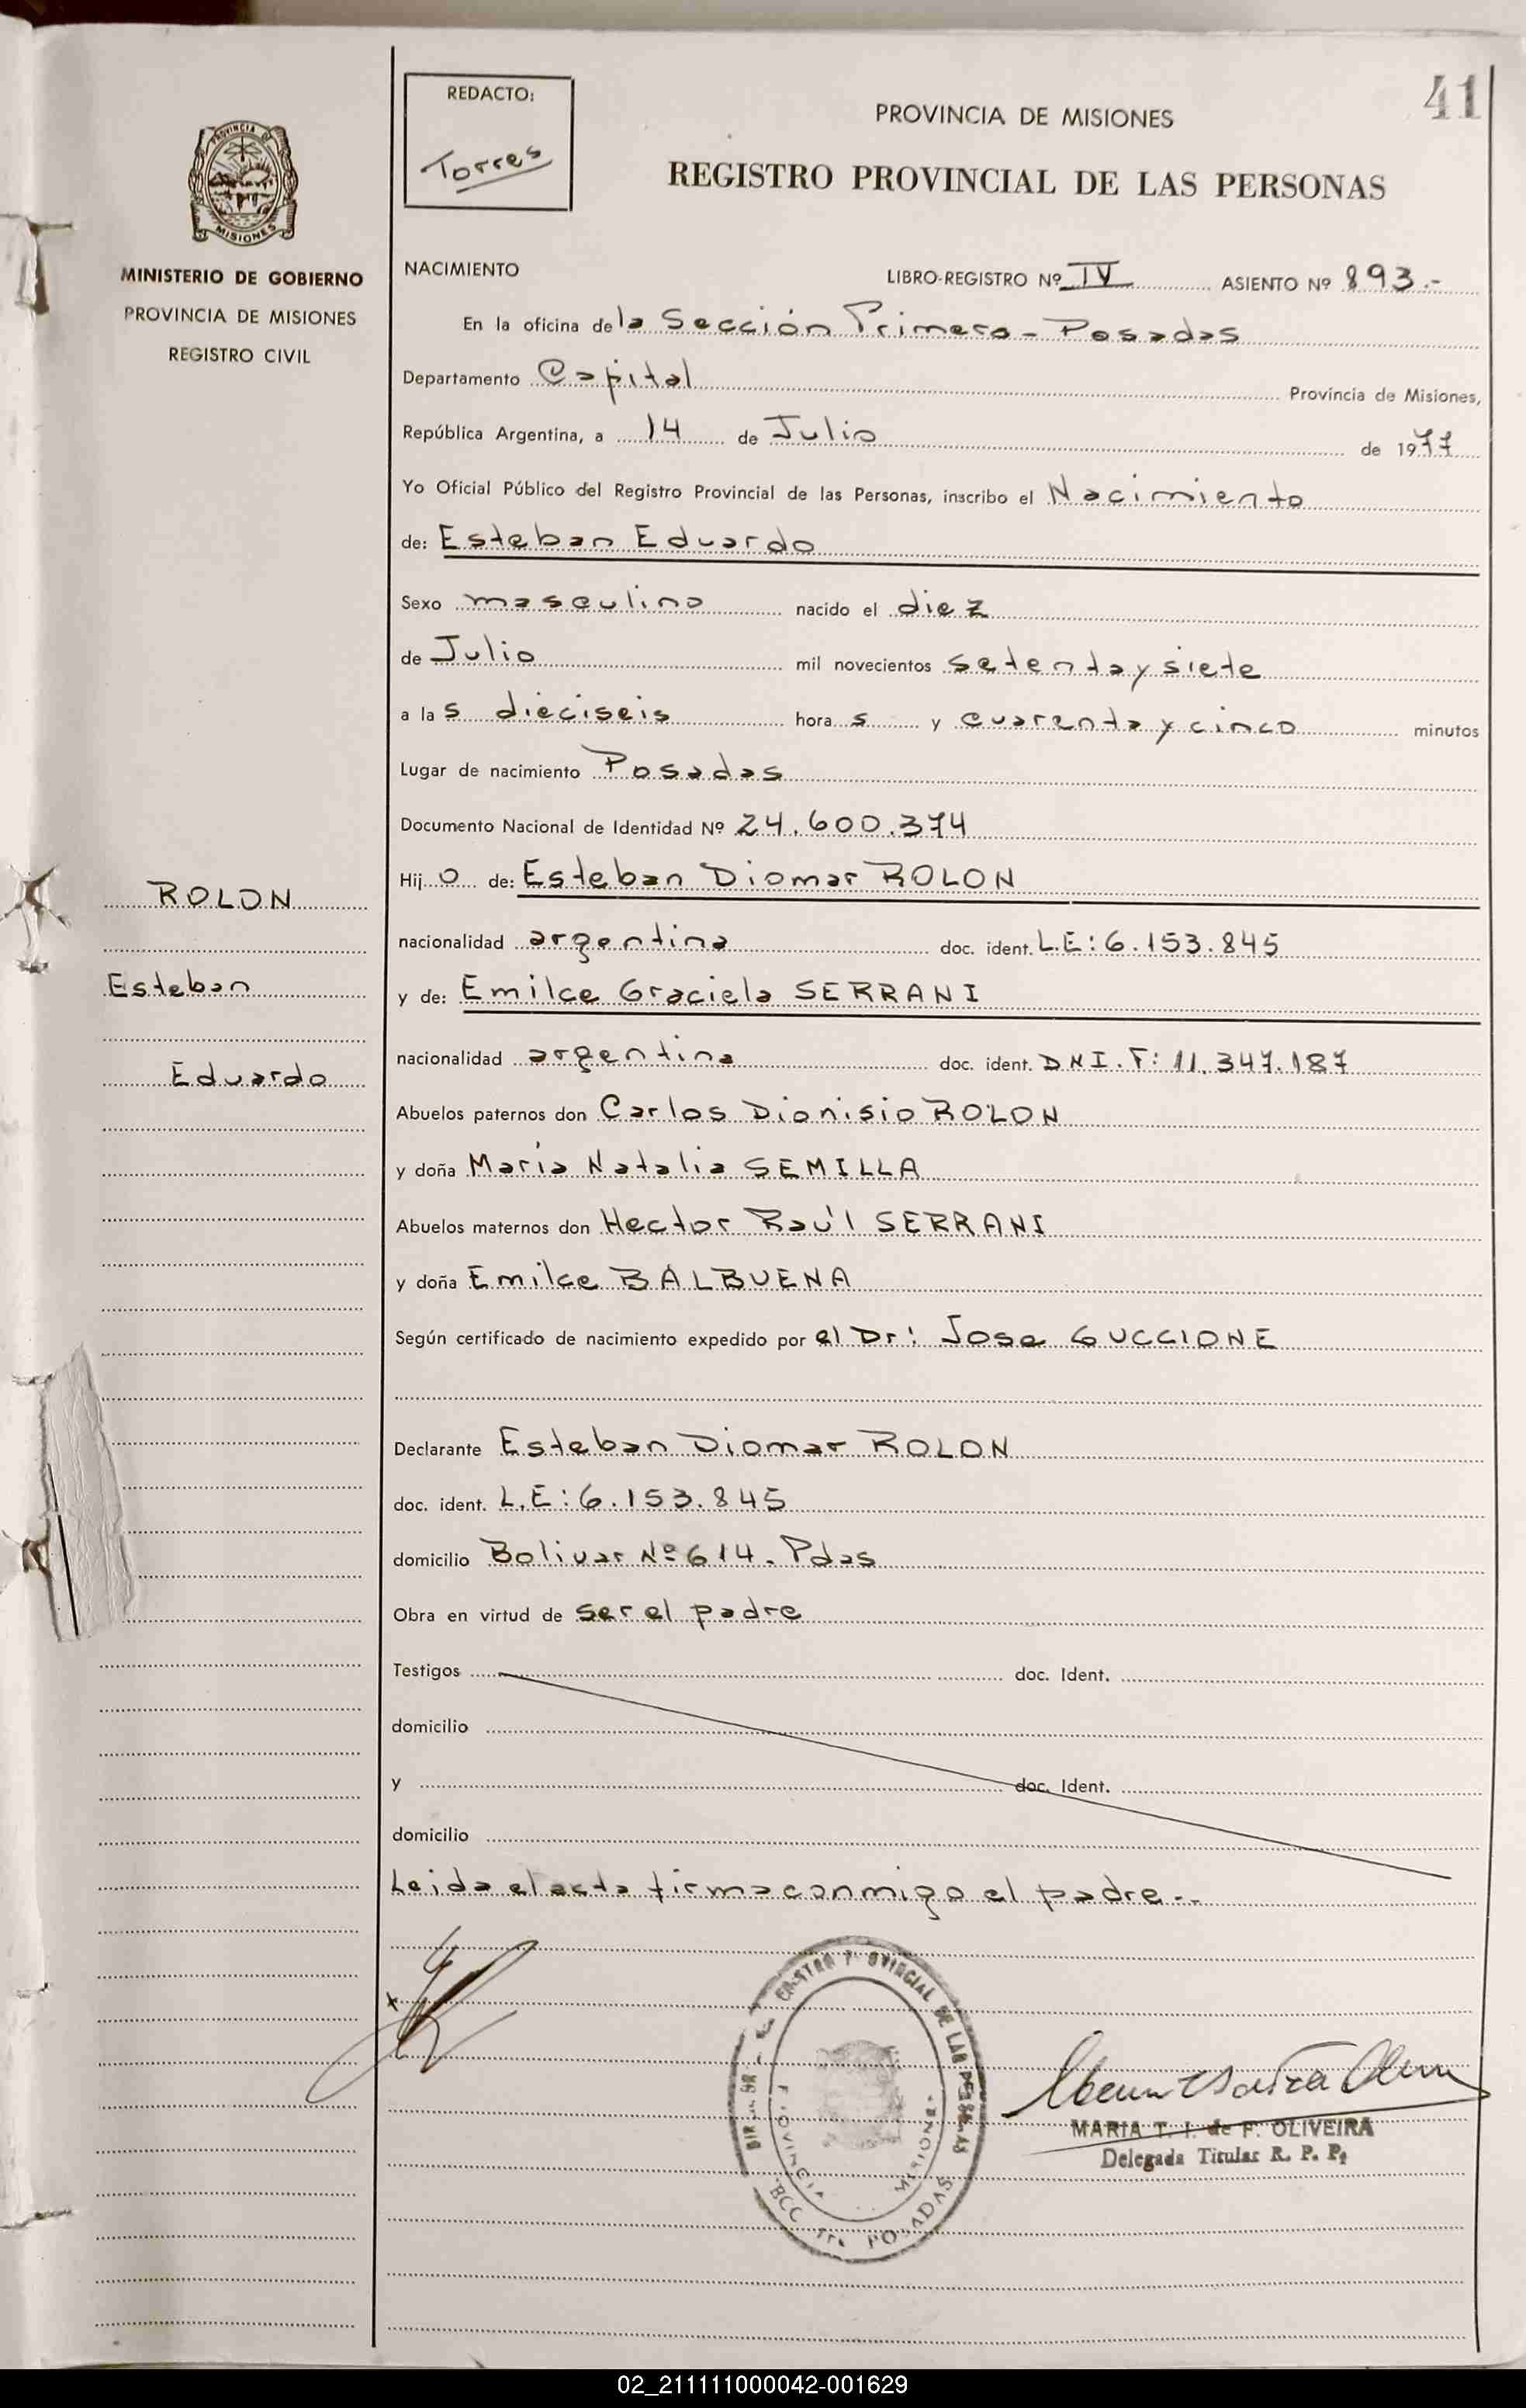 41
REDACTO:
Torres
PROVINCIA DE MISIONES
REGISTRO PROVINCIAL DE LAS PERSONAS
PROVINCIA DE
MISIONES
MINISTERIO DE GOBIERNO
PROVINCIA DE MISIONES
REGISTRO CIVIL
NACIMIENTO LIBRO-REGISTRO Nº IV ASIENTO Nº 893.-
En la oficina de la Sección Primera - Posadas
Departamento Capital Provincia de Misiones,
República Argentina, a 14 de Julio de 1977
Yo Oficial Público del Registro Provincial de las Personas, inscribo el Nacimiento
de: Esteban Eduardo
Sexo masculino nacido el diez
de Julio mil novecientos setenta y siete
a las dieciseis horas y cuarenta y cinco minutos
Lugar de nacimiento Posadas
Documento Nacional de Identidad Nº 24.600.374
ROLON
Esteban
Eduardo
Hijo de: Esteban Diomar ROLON
nacionalidad argentina doc. ident. L.E: 6.153.845
y de: Emilce Graciela SERRANI
nacionalidad argentina doc. ident. DNI.F: 11.347.187
Abuelos paternos don Carlos Dionisio ROLON
y doña María Natalia SEMILLA
Abuelos maternos don Hector Raúl SERRANI
y doña Emilce BALBUENA
Según certificado de nacimiento expedido por el Dr: Jose GUCCIONE
Declarante Esteban Diomar ROLON
doc. ident. L.E: 6.153.845
domicilio Bolivar Nº 614. Pdas
Obra en virtud de ser el padre
Testigos doc. Ident.
domicilio
y doc. Ident.
domicilio
Leida el acta firma conmigo el padre.-
PROVINCIAL DE LAS PERSONAS
PROVINCIA MISIONES
POSADAS
MARIA T. I. de F. OLIVEIRA
Delegada Titular R. P. P.
02_211111000042-001629